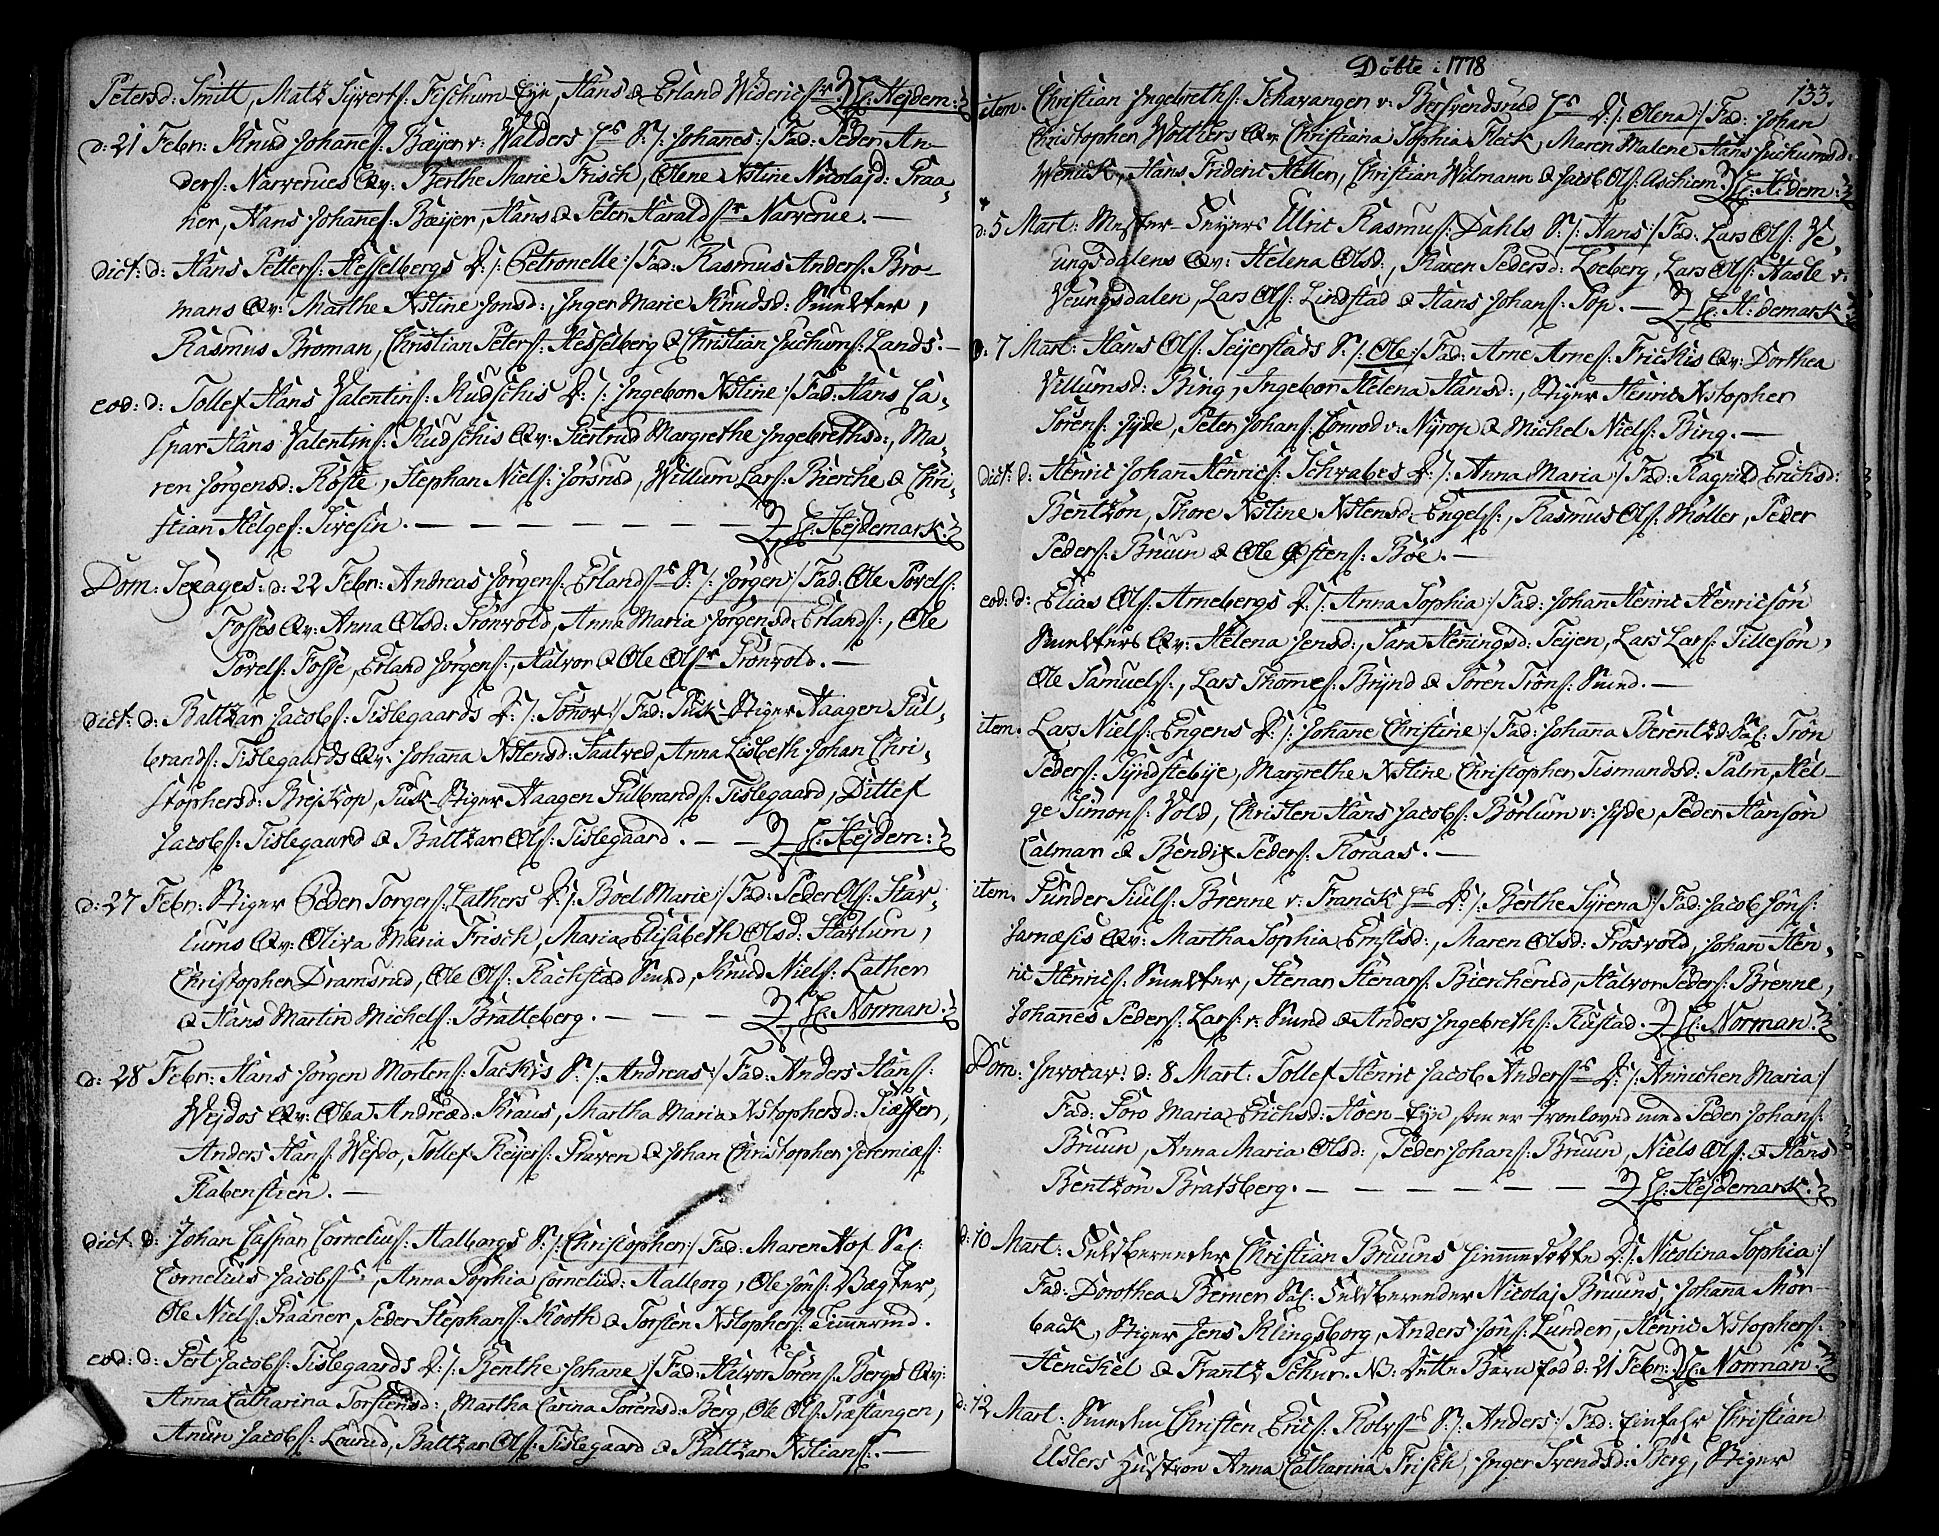 Petersd: Smitt, Matz Syverts: Fischum-Eye, Hans & Erland Widericsr. H. Hejdem:
d: 21 Febr: Knud Johanes: Bæyer v: Walders hs S: /: Johannes :/ Fad: Peder An-
ders: Narverues Qv: Berthe Marie Frisch, Olene Xstine Nicolajd: Praa-
her, Hans Johanes: Bæijer, Hans & Peter Haraldsr Narverue. —
dict: d: Hans Petters: Hesselbergs D: /: Petronelle :/ Fad: Rasmus Anders: Bro-
mans Qv: Marthe Xstine Jonsd:, Inger Marie Knudsd: Smelter,
Rasmus Broman, Christian Peters: Hesselberg & Christian Juchums: Lands. —
eod: d: Tollef Hans Valentins: Kudschis D: /: Ingebor Xstine :/ Fad: Hans Ca-
spar Hans Valentins: Kudschis Qv: Giertrud Margrethe Ingebrethsd:, Ma-
ren Jørgensd: Røste, Stephan Niels: Jørsrud, Willum Lars: Bierche & Chri-
stian Helges: Sivesin. — — — — — H: Hejdemark:
Dom: Sexages: d: 22 Febr: Andreas Jørgens: Erlandss S: /: Jørgen :/ Fad: Ole Povels:
Fosses Qv: Anna Olsd: Trønvold, Anna Maria Jørgensd: Erlands:, Ole
Povels: Fosse, Erland Jørgens:, Halvor & Ole Olsr Trønvold. —
dict: d: Baltzar Jacobs: Tislegaards D: /: Sønov :/ Fad: Puck-Stiger Haagen Ful-
brands: Tislegaards Qv: Johanna Xstensd: Saatved, Anna Lisbeth Johan Chri-
stophersd: Brejskop, Puck-Stiger Haagen Fulbrands: Tislegaard, Dittlef
Jacobs: Tislegaard & Baltzar Ols: Tislegaard. — — H: Hejdem:
d: 27 Febr: Stiger Peder Torgers: Lathers D: /: Boel Marie :/ Fad: Peder Ols: Hav-
lums Qv: Oliva Maria Frisch, Maria Elisabeth Olsd: Havlum,
Christopher Dramsrud, Ole Ols: Rachstad Smed, Knud Niels: Lather
& Hans Martin Michels: Bratteberg. — — — H: Norman:
d: 28 Febr: Hans Jørgen Mortens: Tackys S: /: Andreas :/ Fad: Anders Hans:
Wejdos Qv: Olea Andreæd: Kraus, Martha Maria Xstophersd: Giæsser,
Anders Hans: Wejdo, Tollef Reijers: Praven & Johan Christopher Jeremiæs:
Rabenstien. —
dict: d: Johan Caspar Cornelius: Aalborgs S: /: Christopher :/ Fad: Maren Hof Sal:
Cornelius Jacobss, Anna Sophia Cornelisd: Aalborg, Ole Jons: Vægter,
Ole Niels: Praaner, Peder Stephans: Kooth & Torsten Xstophers: Timerud.
eod: d: Pert Jacobs: Tislegaards D: /: Benthe Johanne :/ Fad: Halvor Sørens: Bergs Qv:
Anna Catharina Torstensd:, Martha Carina Sørensd: Berg, Ole Ols: Præstangen,
Anun Jacobs: Lourud, Baltzar Ols: Tislegaard & Baltzar Xstians: —
Døbte i 1778
133.
item. Christian Ingebreths: Schavangen v: Bersvendsrud hs D: /: Olena :/ Fad: Johan
Christopher Wothers Qv: Christiana Sophia Fleck, Maren Malene Hans Juchumsd:
Wenick, Hans Frideric Heller, Christian Wilmann & Jacob Ols: Aschiem. H: Hdem:
d: 5 Mart: Mester Svejers Ulric Rasmus: Dahls S: /: Hans :/ Fad: Lars Ols: Ve-
ungsdalens Qv: Helena Olsd:, Karen Pedersd: Loeberg, Lars Ols: Hasle v:
Veungsdalen, Lars Ols: Lindstad & Hans Johans: Pop. — H: Hdemark:
d: 7 Mart: Hans Ols: Seijerstads S: /: Ole :/ Fad: Arne Arnes: Frickis Qv: Dorthea
Villumsd: Bing, Ingebor Helena Hansd:, Stiger Henric Xstopher
Sørens: Jyde, Peter Johans: Conrod v: Nyrop & Michel Niels: Bing. —
dict: d: Henric Johan Henrics: Schwabes D: /: Anna Maria :/ Fad: Ragnild Erichsd:
Bentzøn, Thore Xstine Xstensd: Engels:, Rasmus Ols: Møller, Peder
Peders: Bruun & Ole Østens: Bøe. —
eod: d: Elias Ols: Arnebergs D: /: Anna Sophia :/ Fad: Johan Henric Henricsøn
Smelters Qv: Helena Jensd:, Sara Heningsd: Teijen, Lars Lars: Tillesøn,
Ole Samuels:, Lars Thomes: Brynd & Søren Trøns: Smed. —
item. Lars Niels: Engens D: /: Johane Christine :/ Fad: Johana Berentzd: Sal: Trøn
Peders: Syndstebye, Margrethe Xstine Christopher Tismandsd: Palm, Hel-
ge Simons: Vold, Christen Hans Jacobs: Børlum v: Jyde, Peder Hansøn
Calmar & Bendix Peders: Koraas. —
item. Gunder Siuls: Brenne v: Franck hs D: /: Berthe Syrena :/ Fad: Jacob Jons:
Jarnæsis Qv: Martha Sophia Ernstsd:, Maren Olsd: Frosvold, Johan Hen-
ric Henrics: Smelter, Stenar Stenars: Biercherud, Halvor Peders: Brenne,
Johanes Peders: Lars: v: Smed & Anders Ingebreths: Rustad. H: Norman:
Dom: Invocav: d: 8 Mart: Tollef Henric Jacob Anderss D: /: Annichen Maria :/
Fad: Poro Maria Erichsd: Hoen-Eye, som er Tronloved med Peder Johans:
Bruun, Anna Maria Olsd:, Peder Johans: Bruun, Niels Ols: & Hans
Bentzøn Bratsberg. — — — — H: Hejdemark:
d: 10 Mart: Feldberender Christian Bruuns hiemmedøbte D: /: Nicolina Sophia :/
Fad: Dorothea Berner Sal: Feldberender Nicolaj Bruuns, Johana Mør-
back, Stiger Jens Klingsborg, Anders Jons: Lunder, Henric Xstophers:
Henckel & Frantz Schur. NB: Dette Barn fød d: 21 Febr: H: Norman:
d: 12 Mart: Smeden Christen Erics: Rolvss S: /: Anders :/ Fad: Einfahr Christian
Uslers Hustroe Anna Catharina Frisch, Inger Svendsd: Berg, Stiger